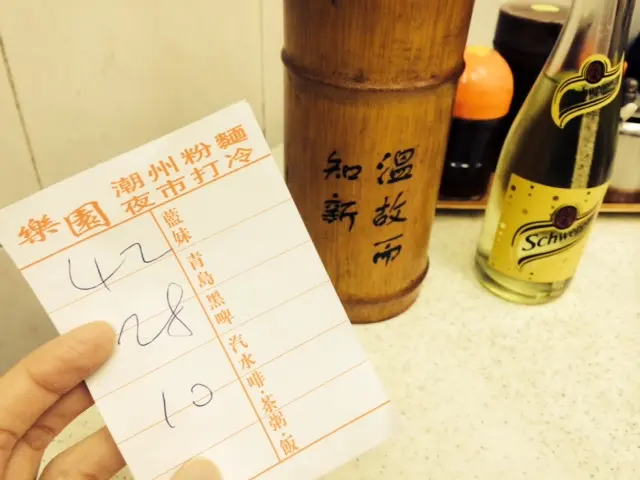 樂園
潮州粉麵
夜市打冷
藍妹
青島
黑啤
汽水
啡·茶
粥·飯
42
28
10
溫故而
知新
Schweppes